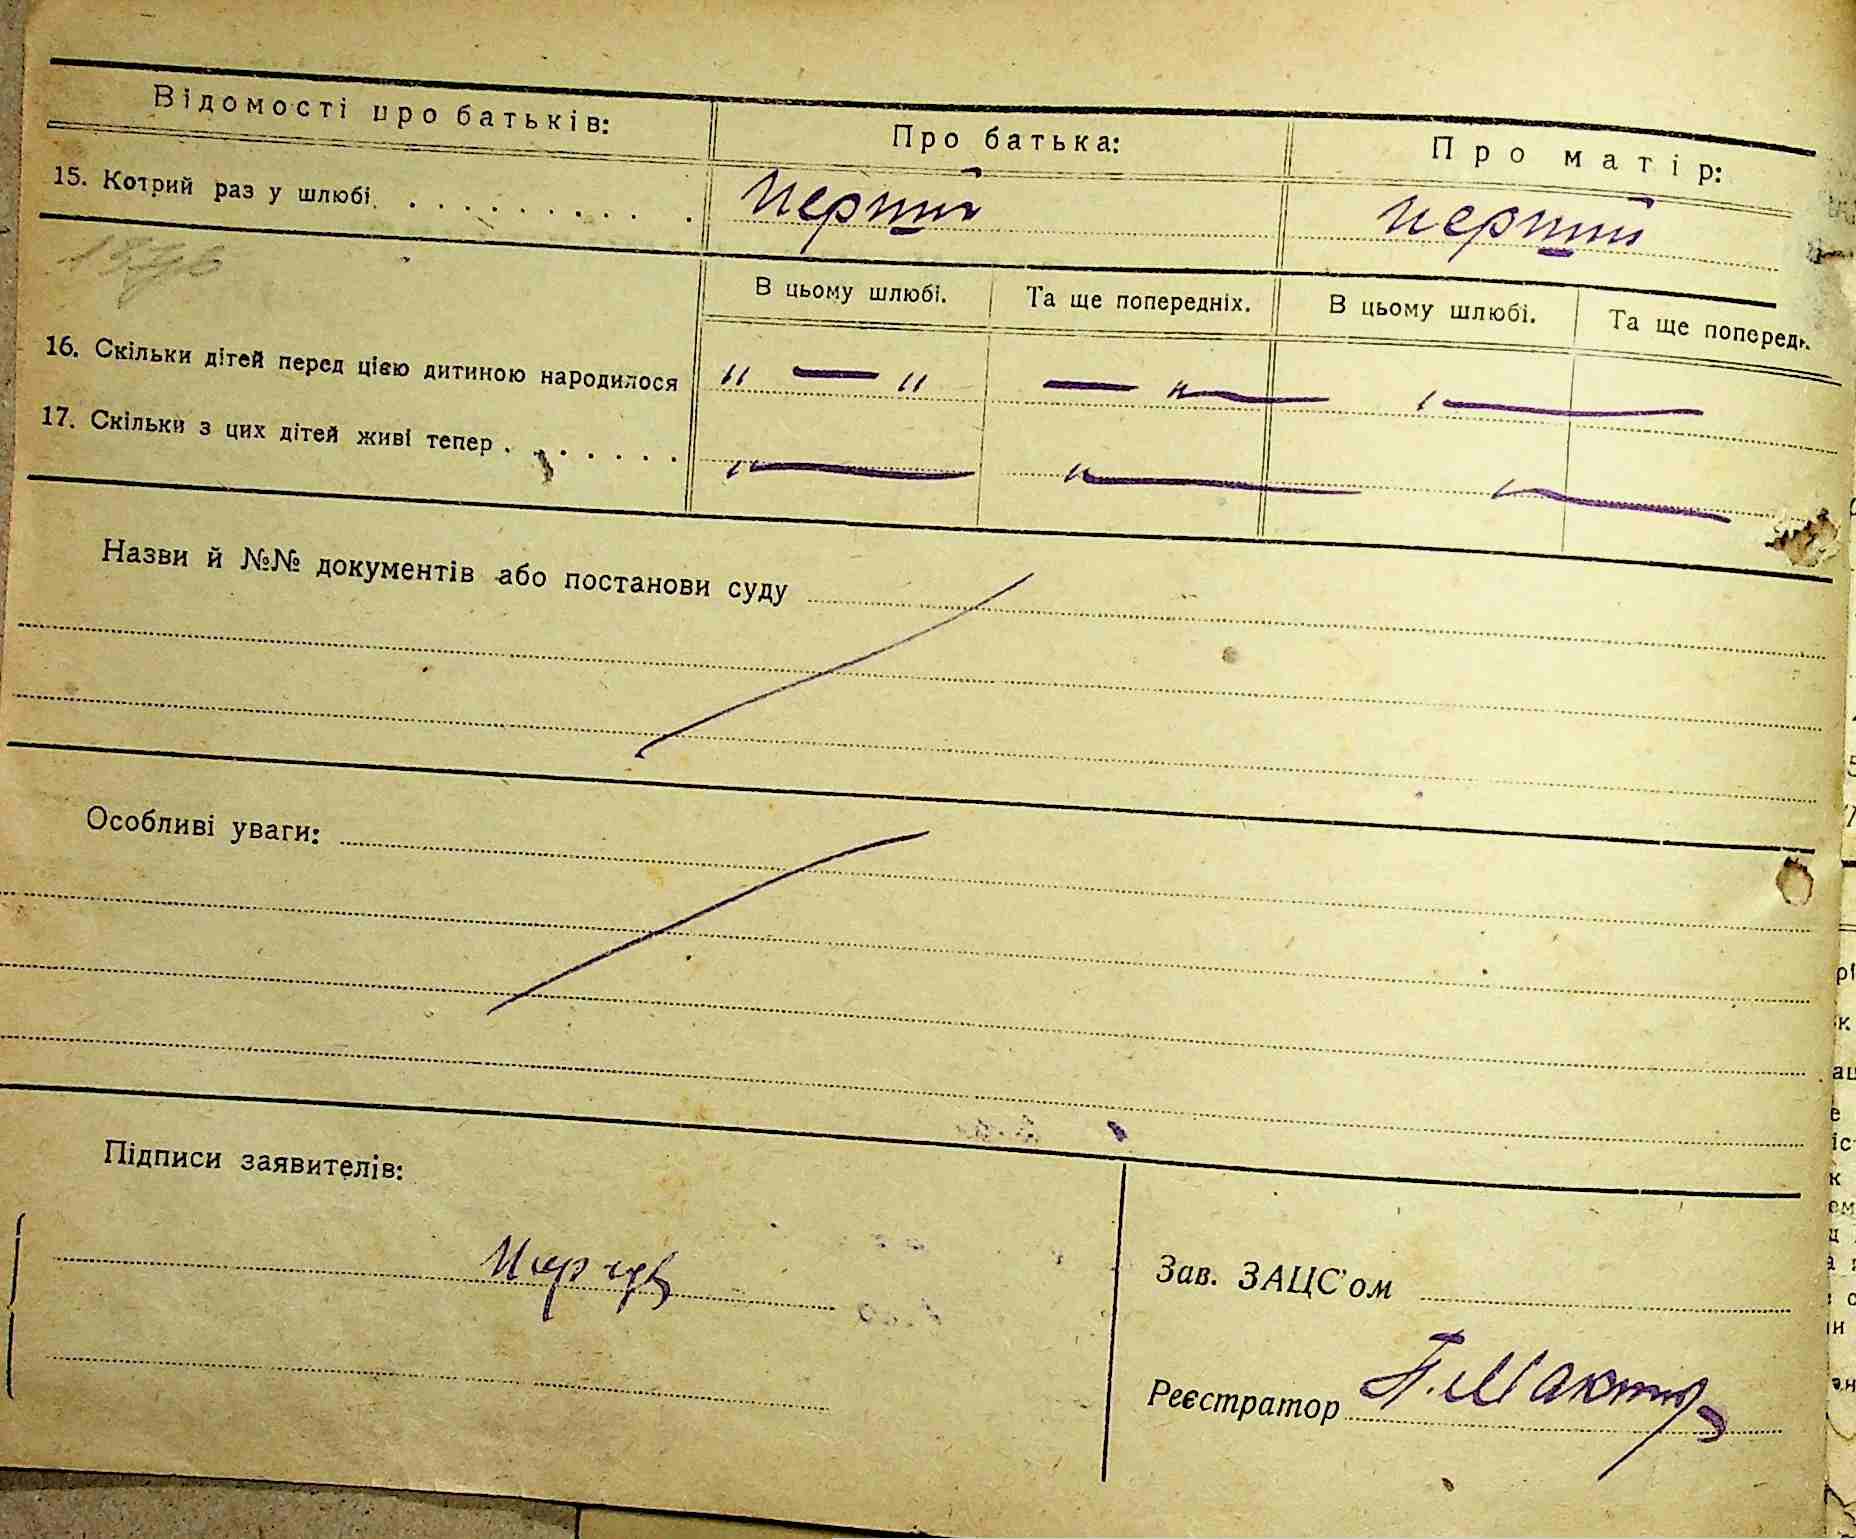 Відомості про батьків: Про батька: Про матір:
15. Котрий раз у шлюбі. . . . . . . . . . перший перший
В цьому шлюбі. Та ще попередніх. В цьому шлюбі. Та ще попередн.
16. Скільки дітей перед цією дитиною народилося " — " — " — " —
17. Скільки з цих дітей живі тепер . . . . . . . " — " — " —
Назви й №№ документів або постанови суду
Особливі уваги:
Підписи заявителів:
Зав. ЗАЦС'ом
Реєстратор